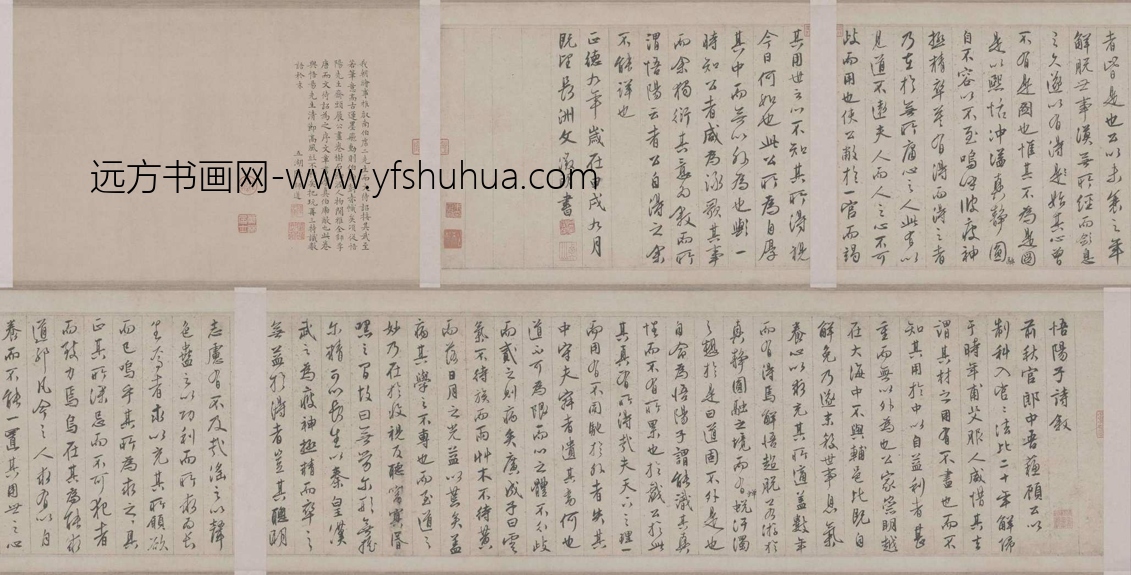 悟陽子詩敘
前秋官郎中晉蘊顧公以
制科入官之法比二十年解佩
于時年甫艾服人咸惜其
謂其材之用有不盡也而不
知其用於中以自益利者甚
重而無以外為也公家崇明越
在大海中不與輔邑比既自
解免乃遂末投世事息氣
養心以求充其所道蓋數年
而有得焉解悟超脫若游於
真靜圓融之境而有蛻汙濁
之趣於是曰道固不外是也
自命為悟陽子謂能識其真
性而不有所累也於戲公於此
其真有所得哉夫天人之理一
而用有不周馳於外者失其
中守夫寂者遺其為何也
道不可為限而心之體不介歧
而貳之則病矣廣成子曰雲
氣不待族而雨艸木不待黃
而落日月之光益以荒矣蓋
病其學之不專也而至道之
妙乃在於收視反聽窅冥昏
嘿之間故曰無勞尔形無搖
尔精可以長生以秦皇漢
武之為疲神極精而卒之
無益於得者豈其聰明
志慮有不及哉淫之以聲
色蠱之以功利而所求為長
生者求以充其所願欲
而已嗚乎其所為求之之具
正其所深忌而不可犯者
而致力焉烏在其為能求
道耶凡今之人求有以自
養而不能一置其用世之心
者皆是也公以未衰之年
解脫世事漠無所經而影息
之久遂以有得是始其心曾
不有是圖也惟其不為是圖
是以熙恬沖瀜真靜圓融
自不容以不至嗚呼彼疲神
極精卒莫有得而得之者
乃在於無所庸心之人此有以
見道不遠夫人而人之心不可
歧而用也使公敝於一官而竭
其用世之以不知其所得視
今日何如也此公所為自厚
其中而無以外為也歟一
時知公者咸為詠歌其事
而余獨衍其意為敘而所
謂悟陽云者公自得之余
不能詳也
正德九年歲在甲戌九月
既望長洲文徵明書
远方书画网-www.yfshuhua.com